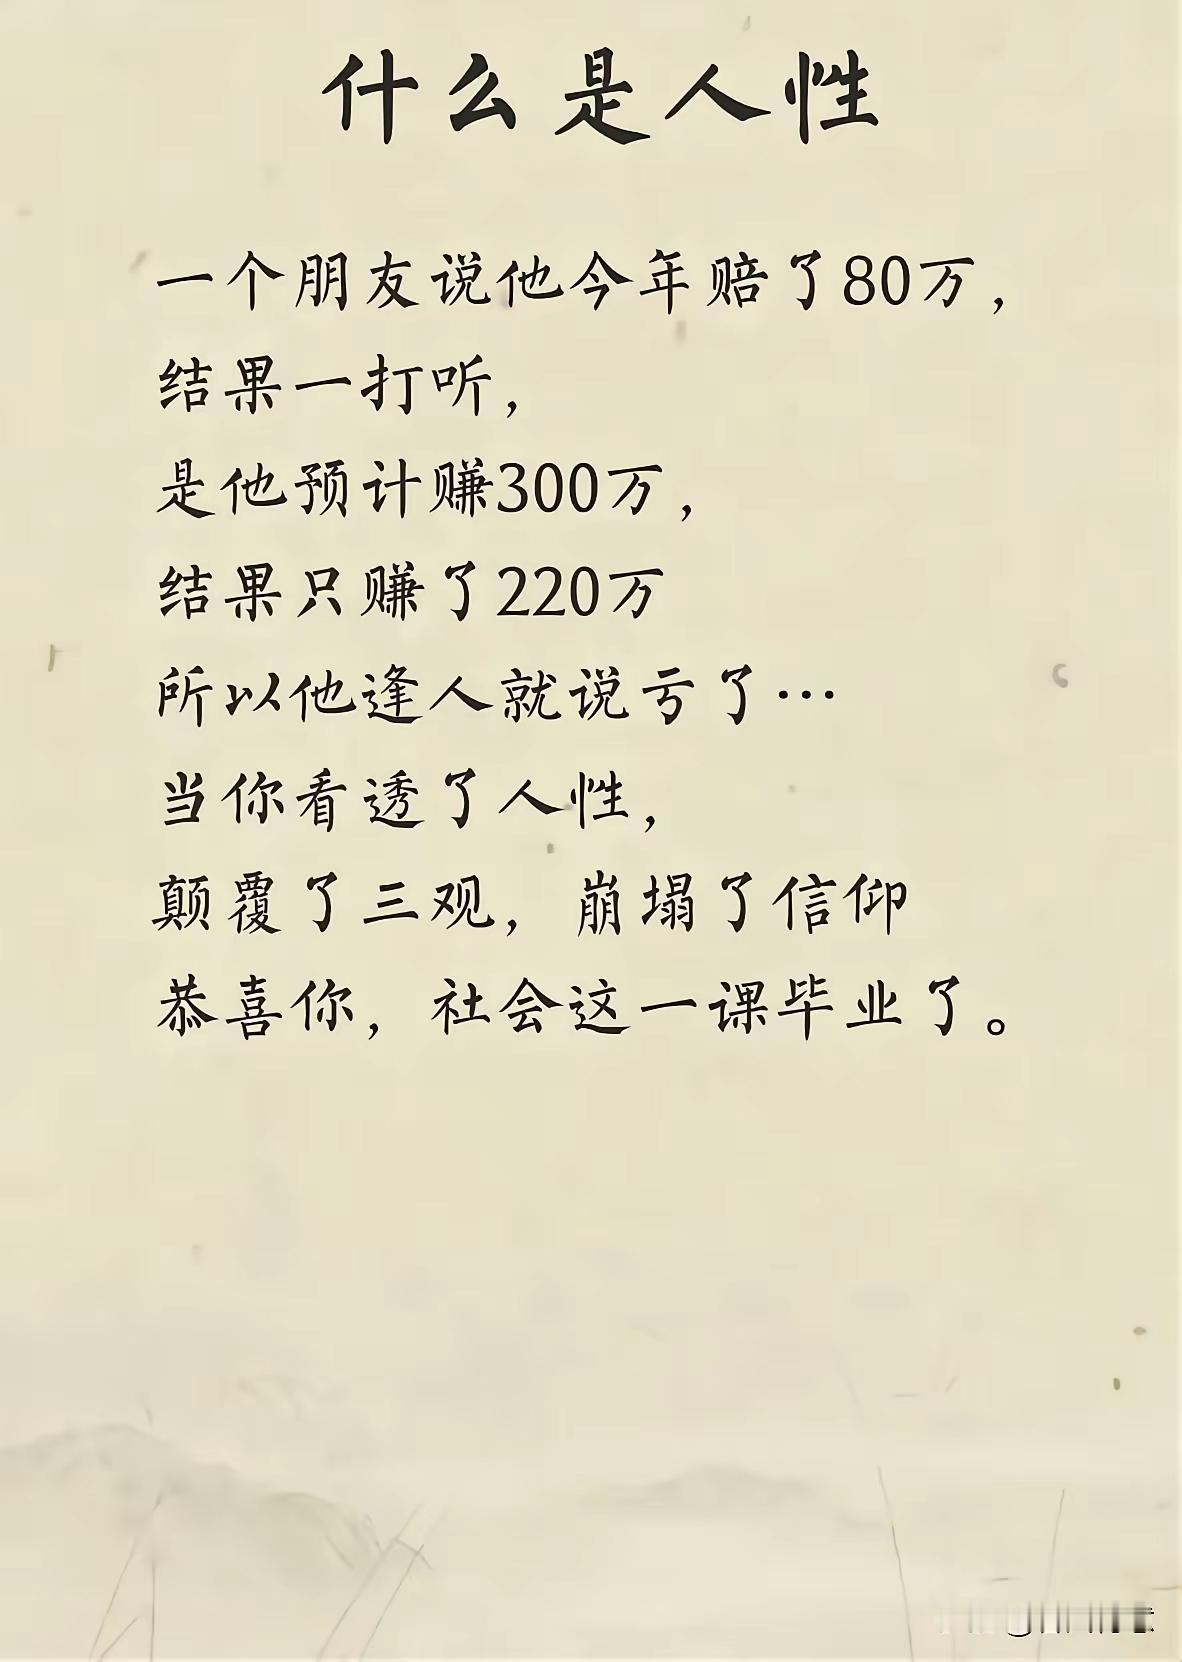 什么是人性
一个朋友说他今年赔了80万，
结果一打听，
是他预计赚300万，
结果只赚了220万
所以他逢人就说亏了…
当你看透了人性，
颠覆了三观，崩塌了信仰
恭喜你，社会这一课毕业了。